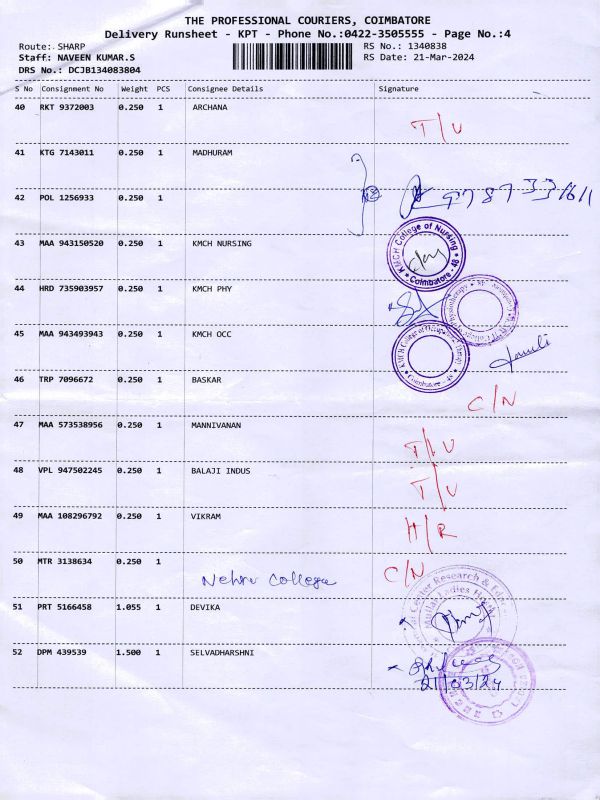 THE PROFESSIONAL COURIERS, COIMBATORE
Delivery Runsheet - KPT - Phone No.:0422-3505555 - Page No.:4
Route: SHARP RS No.: 1340838
Staff: NAVEEN KUMAR.S RS Date: 21-Mar-2024
DRS No.: DCJB134083804
S No Consignment No Weight PCS Consignee Details Signature
40 RKT 9372003 0.250 1 ARCHANA
T/U
41 KTG 7143011 0.250 1 MADHURAM
42 POL 1256933 0.250 1
43 MAA 943150520 0.250 1 KMCH NURSING
KMCH College of Nursing
Coimbatore - 48
44 HRD 735903957 0.250 1 KMCH PHY
45 MAA 943493943 0.250 1 KMCH OCC
KMCH College of Occupational Therapy
Coimbatore - 48
46 TRP 7096672 0.250 1 BASKAR
C/N
47 MAA 573538956 0.250 1 MANNIVANAN
T/U
48 VPL 947502245 0.250 1 BALAJI INDUS
T/U
49 MAA 108296792 0.250 1 VIKRAM
H/R
50 MTR 3138634 0.250 1
Nehru College C/N
Center Research &
Ladies
51 PRT 5166458 1.055 1 DEVIKA
52 DPM 439539 1.500 1 SELVADHARSHNI
21/03/24